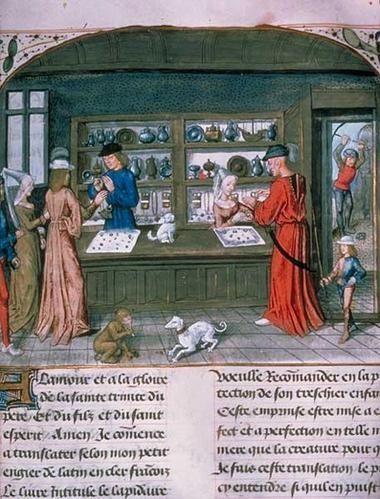 El amour et a la gloire
de la sainte trinite du
pere Et du filz et du saint
esperit Amen Je comence
a translater selon mon petit
engier de latin en cler francois
Le livre Intitule le lapidaire
veulle Recommander en la p
tection de son treschier enfan
Ceste emprise estre mise a e
fect et a perfection en telle m
mere que la creature pour q
Je fais ceste translation le p
cy entendre si quil en puist